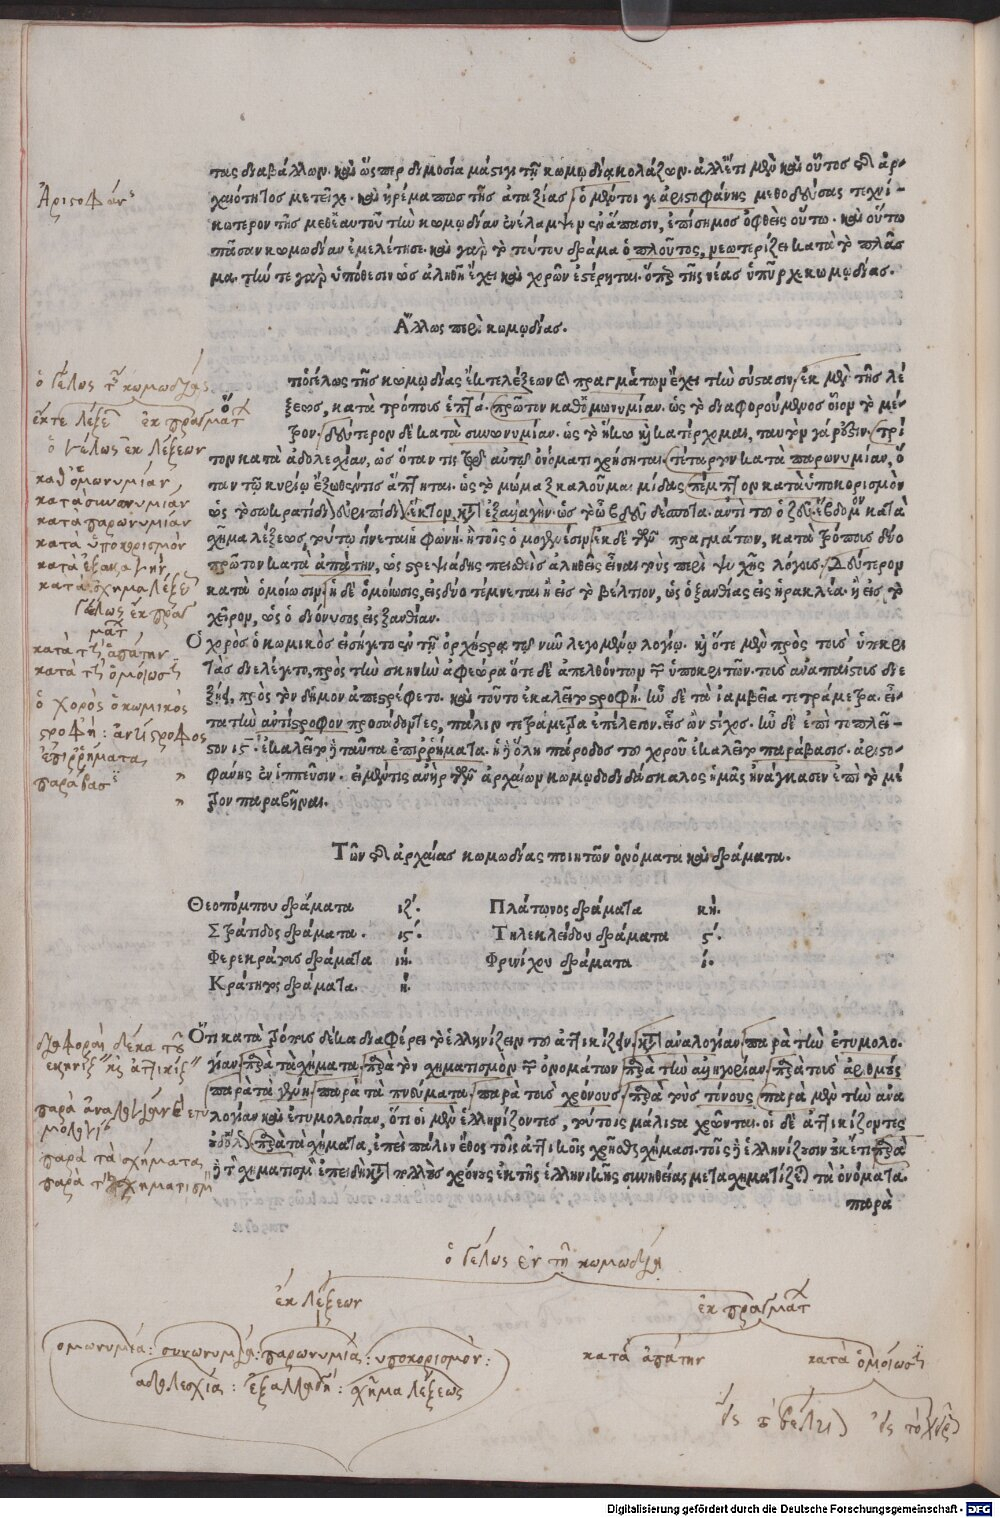 τας διαβάλλων. καὶ ὥσπερ δημοσία μάστιγι τῇ κωμῳδίᾳ κολάζων. ἀλλ' ἔτι μὲν καὶ οὗτος τῆς ἀρ-
χαιότητος μετεῖχε. καὶ ἠρέμα πως τῆς ἀταξίας. ὁ μέντοι γ' ἀριστοφάνης μεθοδεύσας τεχνι-
κώτερον τῆς μεθ' ἑαυτοῦ τὴν κωμῳδίαν ἐνέλαμψεν ἐν ἅπασιν, ἐπίσημος ὀφθεὶς οὕτω. καὶ οὕτω
πᾶσαν κωμῳδίαν ἐμελέτησε. καὶ γὰρ τὸ τούτου δράμα ὁ πλοῦτος, νεωτερίζει κατὰ τὸ πλᾶσ
μα. τήν τε γὰρ ὑπόθεσιν ὡς ἀληθῆ ἔχει καὶ χορῶν ἐστέρηται. ὅπερ τῆς νέας ὑπῆρχε κωμῳδίας.
Ἄλλως περὶ κωμῳδίας.
ὁ
πὸ γέλως τῆς κωμῳδίας ἔκ τε λέξεων καὶ πραγμάτων ἔχει τὴν σύστασιν. ἐκ μὲν τῆς λέ
ξεως, κατὰ τρόπους ἑπτά. πρῶτον καθ' ὁμωνυμίαν. ὡς τὸ διαφορούμενος οἷον τὸ μέ-
τρον. δεύτερον δὲ κατὰ συνωνυμίαν. ὡς τὸ ἥκω καὶ κατέρχομαι, ταυτὸν γάρ ἐστιν. τρί
τον κατὰ ἀδολεχίαν, ὡς ὅταν τις τῷ αὐτῷ ὀνόματι χρήσηται. τέταρτον κατὰ παρωνυμίαν, ὅ
ταν τῷ κυρίῳ ἔξωθέν τις ἅπτηται. ὡς τὸ μώμαξ καλοῦμαι μίδας πέμπτον κατὰ ὑποκορισμὸν
ὡς τὸ σωκρατίδιον εὐριπίδιον. ἕκτον κατὰ ἐξαλλαγὴν. ὡς τὸ ὦ βδεῦ δέσποτα. ἀντὶ τοῦ ὦ ζεῦ. ἕβδομον κατὰ
σχῆμα λέξεως, τοῦτο γίνεται ἢ φωνῇ. ἢ τοῖς ὁμογενέσιν. ἐκ δὲ τῶν πραγμάτων, κατὰ τρόπους δύο
πρῶτον κατὰ ἀπάτην, ὡς στρεψιάδης πεισθεὶς ἀληθεῖς εἶναι τοὺς περὶ ψύλλης λόγους. δεύτερον
κατὰ ὁμοίωσιν. ἡ δὲ ὁμοίωσις, εἰς δύο τέμνεται ἢ εἰς τὸ βέλτιον, ὡς ὁ ξανθίας εἰς ἡρακλέα. ἢ εἰς τὸ
χεῖρον, ὡς ὁ διόνυσος εἰς ξανθίαν.
Ὁ χορὸς ὁ κωμικὸς εἰσήγετο ἐν τῇ ὀρχήστρᾳ τῷ νῦν λεγομένῳ λογίῳ. καὶ ὅτε μὲν πρὸς τοὺς ὑποκρι
τὰς διελέγετο, πρὸς τὴν σκηνὴν ἀφεώρα ὅτε δὲ ἀπελθόντων τῶν ὑποκριτῶν. τοὺς ἀναπαίστους διε
ξῄει, πρὸς τὸν δῆμον ἀπεστρέφετο. καὶ τοῦτο ἐκαλεῖτο στροφή. ἦν δὲ τὰ ἰαμβεῖα τετράμετρα. εἶ-
τα τὴν ἀντίστροφον προσᾴδοντες, πάλιν τετράμετρα ἐπέλεγον. εἰς ὢν στίχος. ἦν δὲ ἐπὶ τὸ πλεῖ-
στον ις. ἐκαλεῖτο ἢ ταῦτα ἐπιρρήματα. ἡ ἢ ὅλη πάροδος τοῦ χοροῦ ἐκαλεῖτο παράβασις. ἀριστο-
φάνης ἐν ἱππεῦσιν. εἰ μέν τις ἀνὴρ τῶν ἀρχαίων κωμῳδοδιδάσκαλος ἡμᾶς ἠνάγκασεν ἐπὶ τὸ μέ
τρον παραβῆναι.
Τῶν τῆς ἀρχαίας κωμῳδίας ποιητῶν ὀνόματα καὶ δράματα.
Θεοπόμπου δράματα ιζ. Πλάτωνος δράματα κή.
Στράτιδος δράματα. ις. Τηλεκλείδου δράματα ς.
Φερεκράτους δράματα ιή. Φρινίχου δράματα ί.
Κράτητος δράματα. ή.
Ὅτι κατὰ τρόπους δέκα διαφέρει τὸ ἑλληνίζειν τοῦ ἀττικίζειν, κατὰ ἀναλογίαν, παρὰ τὴν ἐτυμολο-
γίαν, παρὰ τὰ σχήματα, παρὰ τὸν σχηματισμὸν τῶν ὀνομάτων, παρὰ τὴν ἀλληγορίαν, παρὰ τοὺς ἀριθμοὺς
παρὰ τὰ γένη, παρὰ τὰ πνεύματα, παρὰ τοὺς χρόνους, παρὰ τοὺς τόνους, παρὰ μὲν τὴν ἀνα
λογίαν καὶ ἐτυμολογίαν, ὅτι οἱ μὲν ἑλληνίζοντες, τούτοις μάλιστα χρῶνται. οἱ δὲ ἀττικίζοντες
παρὰ τὰ σχήματα, ἐπεὶ πάλιν ἔθος τοῖς ἀττικοῖς χρῆσθαι σχήμασι. τοῖς ἢ ἑλληνίζουσιν οὐκ ἔτι παρὰ
ἢ τὸ σχηματισμὸν ἐπειδὴ κατὰ πολλοὺς χρόνους ἐκ τῆς ἑλληνικῆς συνηθείας μετασχηματίζει τὰ ὀνόματα.
παρὰ
Ἀριστοφάν
ὁ γέλως τῆς κωμωδίας
ἔκ τε λέξε ἐκ πραγμάτ
ὁ γέλως ἐκ λέξεων
καθ' ὁμωνυμίαν
κατὰ συνωνυμίαν
κατὰ παρωνυμίαν
κατὰ ὑποκορισμὸν
κατὰ ἐξαλλαγήν
κατὰ σχῆμα λέξε
γέλως ἐκ πραγ
ματ
κατὰ τ ἀπάτην
κατὰ τ ὁμοίωσ
ὁ χορὸς ὁ κωμικὸς
στροφή: ἀντίστροφος
ἐπιρρήματα
παράβασ
διαφοραὶ δέκα τοῦ
παρὰ ἀναλογίαν ἐτυ
μολογί
παρὰ τὰ σχήματα
παρὰ τ σχηματισμ
ὁ γέλως ἐν τῇ κωμωδίᾳ
ἐκ λέξεων ἐκ πραγμάτ
ομωνυμία: συνωνυμία: παρωνυμίας: υποκορισμὸν: κατὰ ἀπάτην κατὰ ὁμοίωσ
αδολεσχίας: ἐξαλλαγή: σχῆμα λέξεως
εἰς τὸ βέλτι εἰς τὸ χεῖρ
Digitalisierung gefördert durch die Deutsche Forschungsgemeinschaft - DFG